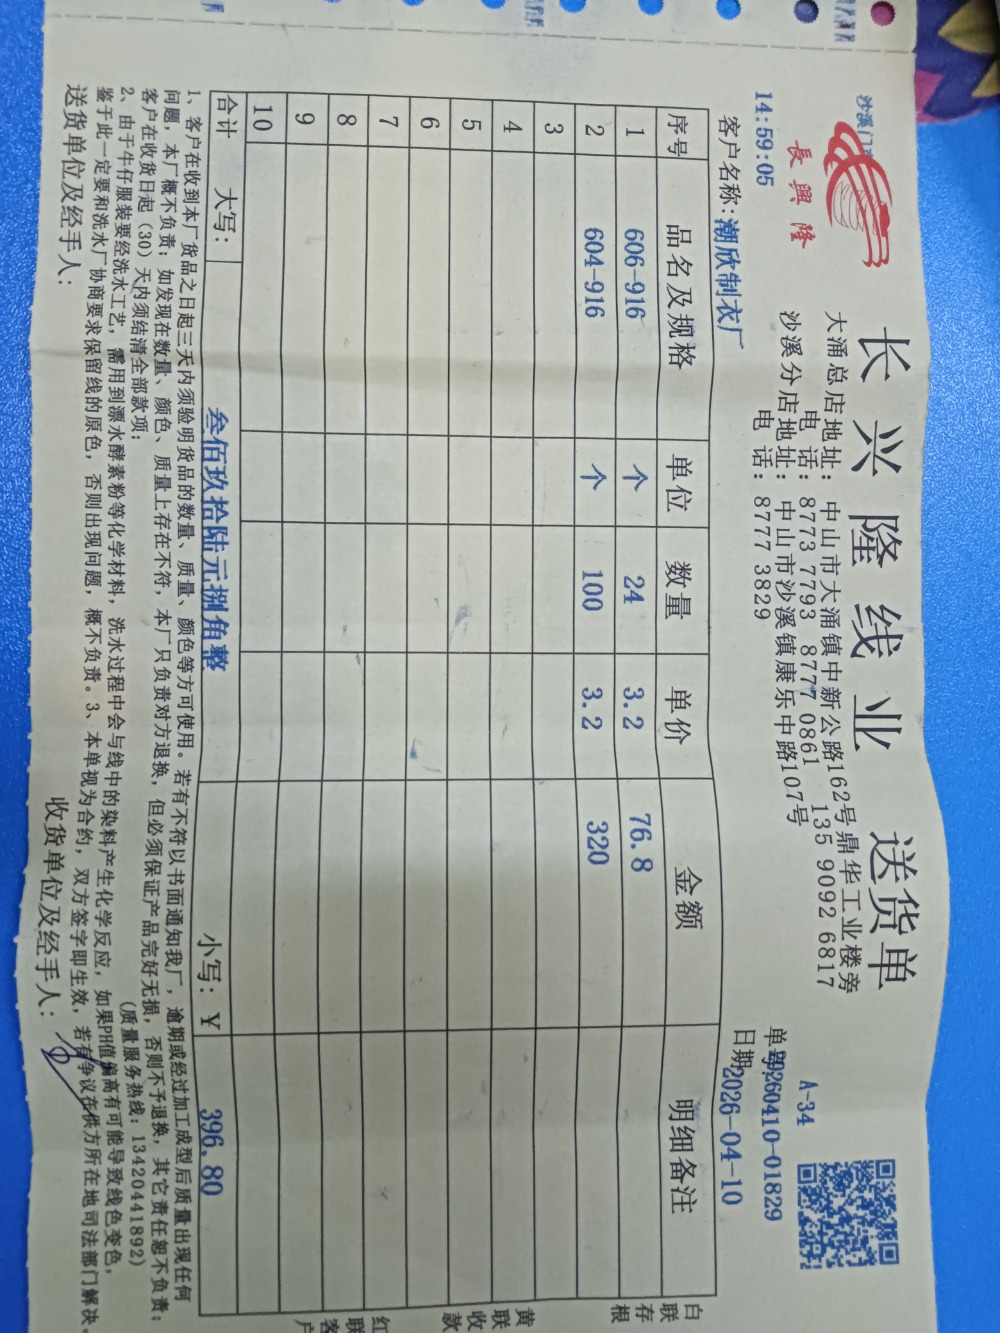 沙溪门市
長興隆
长兴隆线业 送货单
大涌总店地址: 中山市大涌镇中新公路162号鼎华工业楼旁
电 话: 8773 7793 8777 0861 135 9092 6817
沙溪分店地址: 中山市沙溪镇康乐中路107号
电 话: 8777 3829
A-34
14:59:05
单号:20260410-01829
客户名称: 潮欣制衣厂
日期:2026-04-10
序号 品名及规格 单位 数量 单价 金额 明细备注
1 606-916 个 24 3.2 76.8
2 604-916 个 100 3.2 320
3
4
5
6
7
8
9
10
合计 大写: 叁佰玖拾陆元捌角整 小写: ¥ 396.80
1、客户在收到本厂货品之日起三天内须验明货品的数量、质量、颜色等方可使用。若有不符以书面通知我厂，逾期或经过加工成型后质量出现任何
问题，本厂概不负责；如发现在数量、颜色、质量上存在不符，本厂只负责对方退换，但必须保证产品完好无损，否则不予退换，其它责任恕不负责；
客户在收货日起（30）天内须结清全部款项； (质量服务热线: 13420441892)
2、由于牛仔服装要经洗水工艺，需用到漂水酵素粉等化学材料，洗水过程中会与线中的染料产生化学反应，如果PH值偏高有可能导致线色变色，
鉴于此一定要和洗水厂协商要求保留线的原色，否则出现问题，概不负责。3、本单视为合约，双方签字即生效，若有争议在供方所在地司法部门解决。
送货单位及经手人: 收货单位及经手人:
白联存根
黄联收款
红联客户